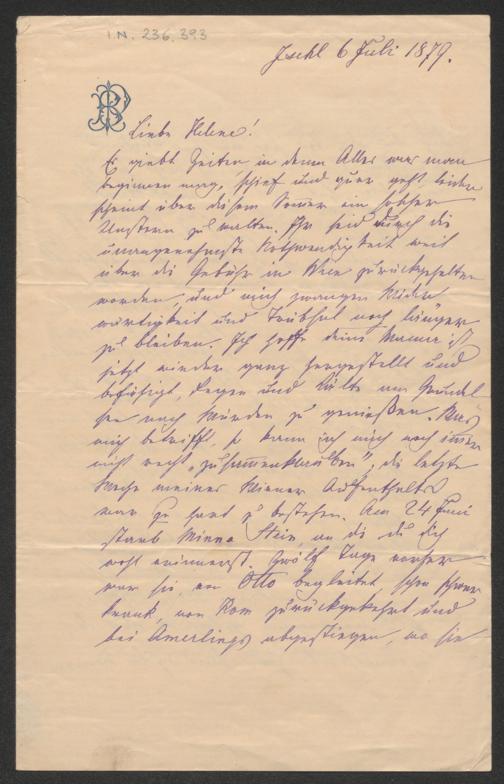 I.N. 236.393
Ischl 6 Juli 1879.
Liebe Helene!
Es giebt Zeiten in denen Alles was man
beginnen mag, schief und quer geht, leider
scheint über diesem Somer ein solcher
Unstern zu walten. Ihr seid durch die
unangenehmste Nothwendigkeit weit
über die Gebühr in Wien zurückgehalten
worden, und mich zwangen Wider
wärtigkeit und Trübsal noch länger
zu bleiben. Ich hoffe deine Mama ist
jetzt wieder ganz hergestellt und
befähigt, Regen und Kälte am Grundl
see nach Würden zu genießen. Was
mich betrifft, so kann ich mich noch imer
nicht recht „zusammenklauben", die letzte
Woche meines Wiener Aufenthaltes
war zu hart zu bestehen. Am 24 Juni
starb Minna Stein, an die du dich
wohl erinnerst. Zwölf Tage vorher
war sie, von Otto begleitet, schon schwer
krank, von Rom zurückgekehrt und
bei Amerlings abgestiegen, wo sie